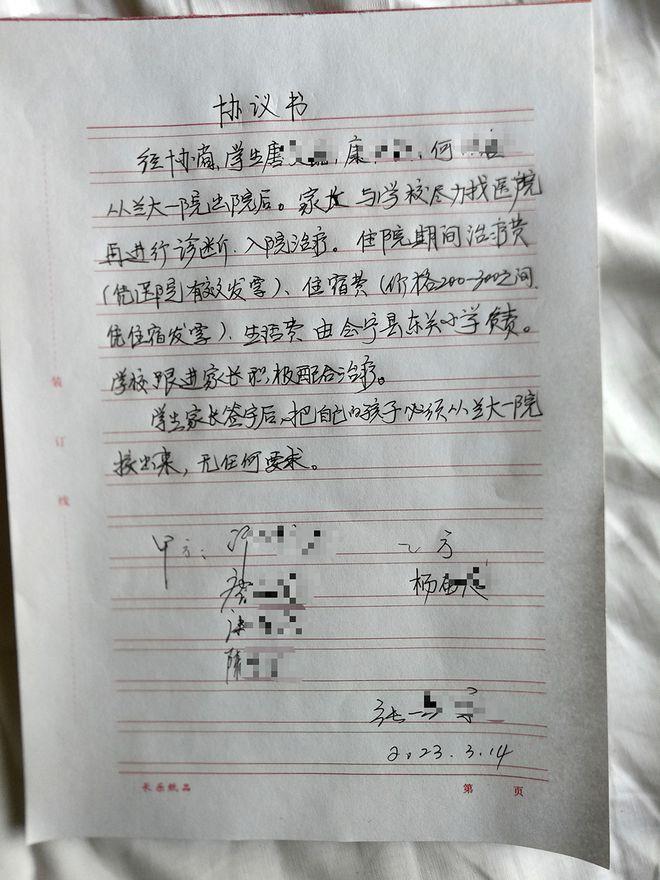 协议书
经协商,学生唐 康 何
从兰大一院出院后。家长与学校尽力找医院
再进行诊断、入院治疗。住院期间治疗费
(凭医院有效发票)、住宿费(价格200-300之间
凭住宿发票)、生活费由会宁县东关小学负责。
学校跟进家长积极配合治疗。
学生家长签字后,把自己的孩子必须从兰大一院
接出来,无任何要求。
甲方: 乙方
杨
2023.3.14
装
订
线
长乐纸品 第 页